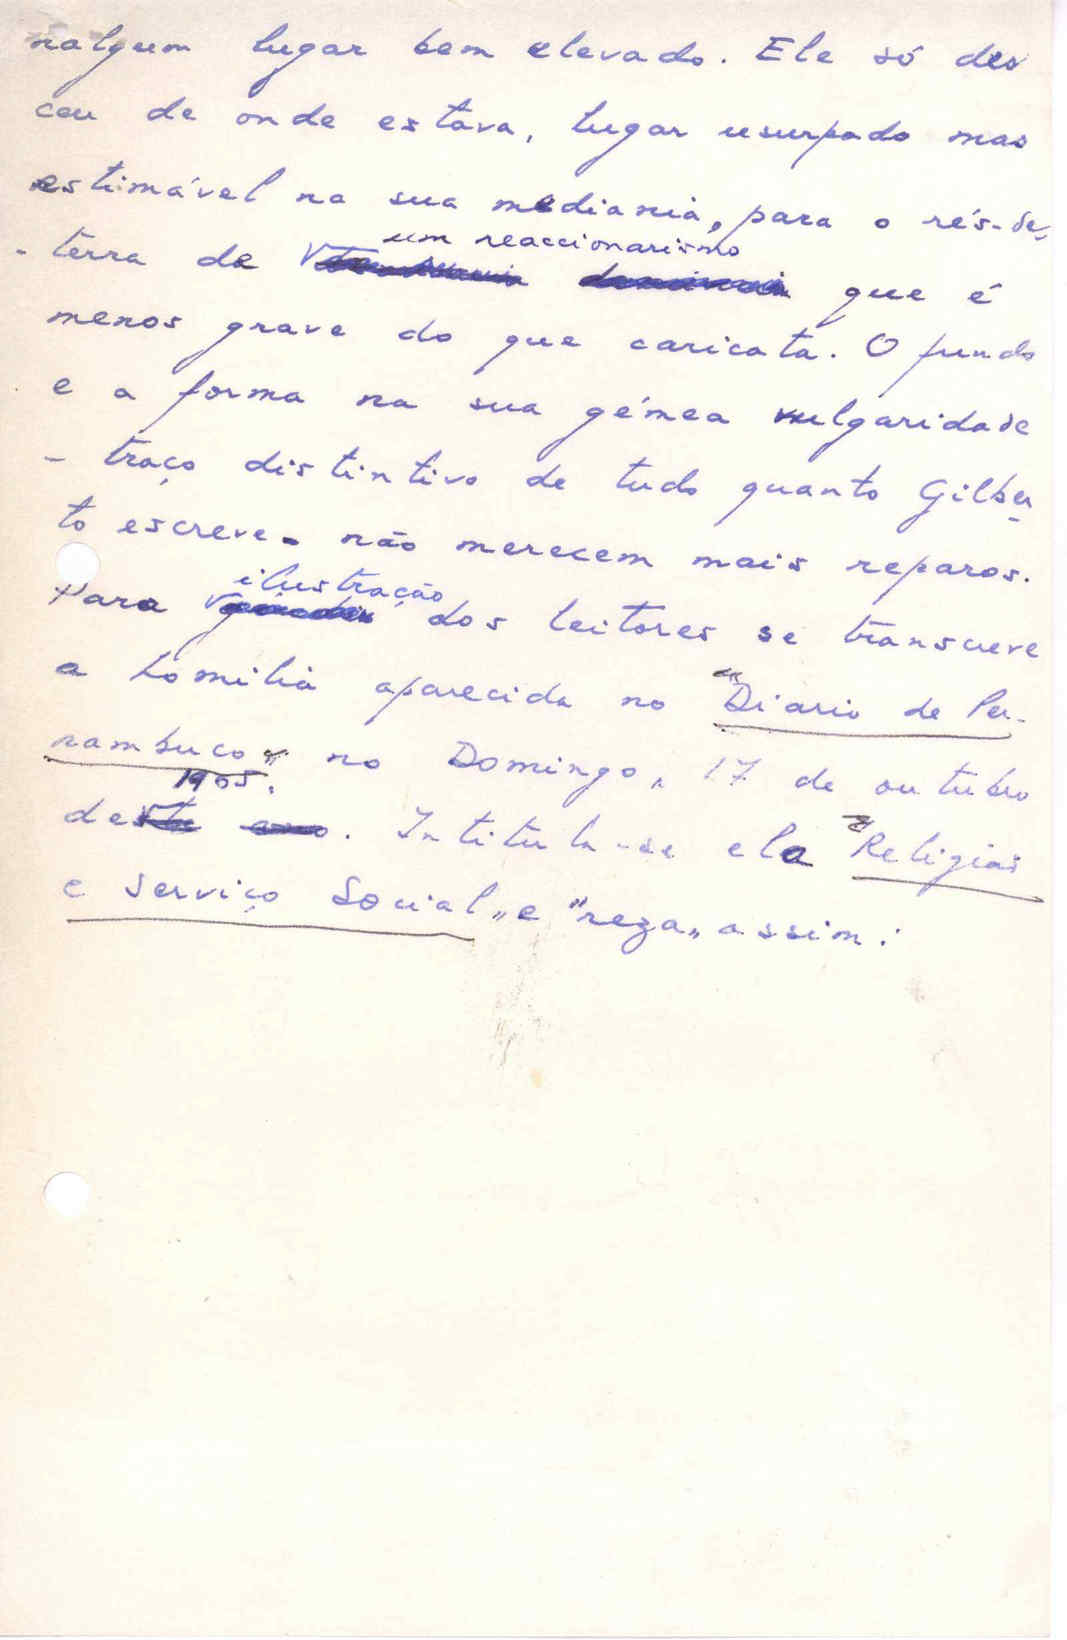 nalgum lugar bem elevado. Ele só des
ceu de onde estava, lugar usurpado mas
estimável na sua mediania, para o rés-de-
-terra de um reaccionarismo que é
menos grave do que caricata. O fundo
e a forma na sua gémea vulgaridade
- traço distintivo de tudo quanto Gilber
to escreve - não merecem mais reparos.
Para ilustração dos leitores se transcreve
a homilia aparecida no "Diario de Per-
nambuco" no Domingo, 17 de outubro
de 1965. Intitula-se ela "Religião
e Serviço Social" e "reza" assim: